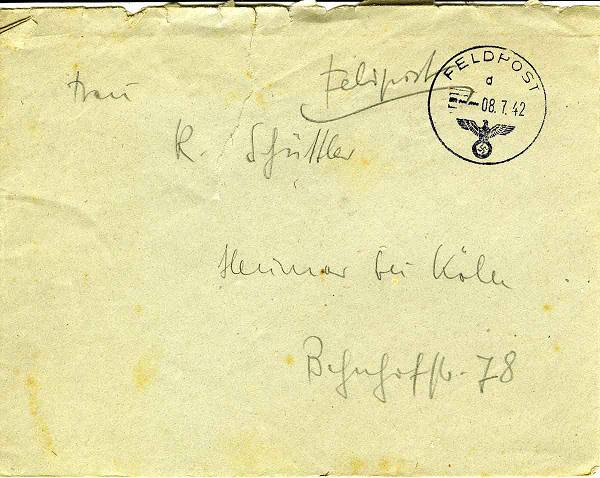 Feldpost
FELDPOST
d
08.7.42
Frau
R. Schüttler
Heumar bei Köln
Bahnhofstr. 78